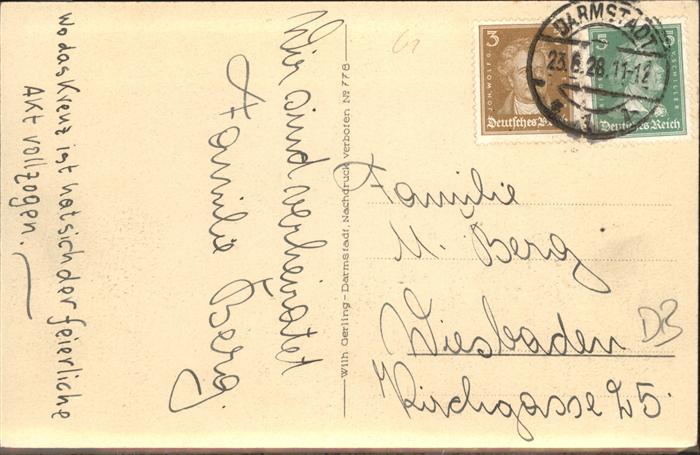 Wo das Kreuz ist hat sich der feierliche
Akt vollzogen.
Wir sind verheiratet
Familie Berg.
Wilh. Gerling-Darmstadt, Nachdruck verboten No 778
3
JOH. WOLFG.
Deutsches Reich
5
SCHILLER
Deutsches Reich
DARMSTADT
23.6.28.11-12
1
Familie
M. Berg
Wiesbaden
Kirchgasse 25.
DB